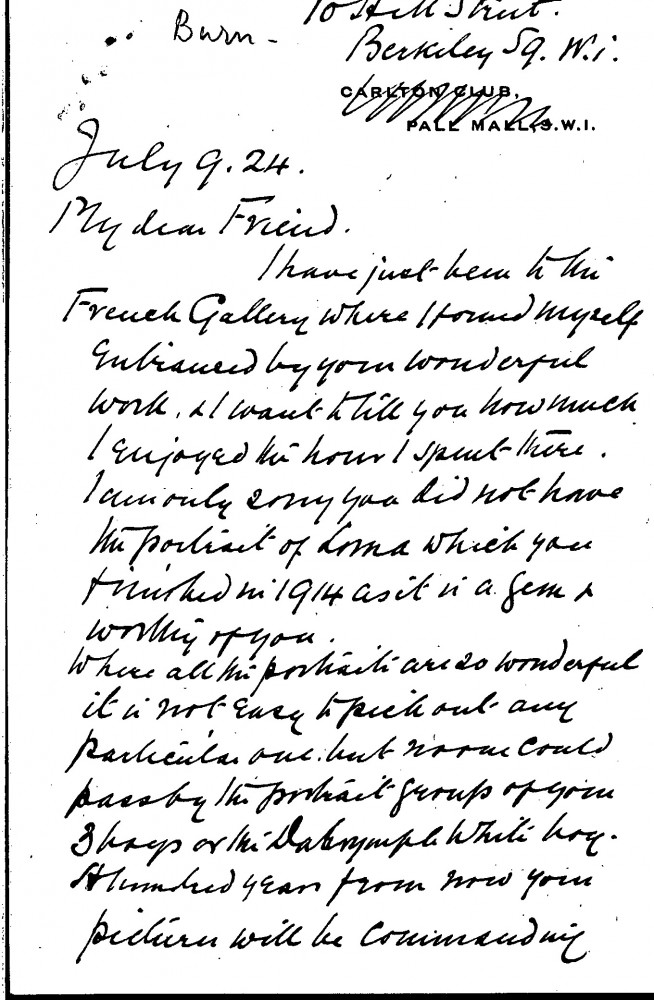 Burn -
10 Hill Street.
Berkeley Sq. W.1.
CARLTON CLUB,
PALL MALL, S.W.1.
July 9. 24.
My dear Friend.
I have just been to the
French Gallery where I found myself
Entranced by your wonderful
work. & I want to tell you how much
I enjoyed the hour I spent there.
I am only sorry you did not have
the portrait of Lorna which you
finished in 1914 as it is a gem &
worthy of you.
Where all the portraits are so wonderful
it is not easy to pick out any
particular one. but no one could
pass by the portrait group of your
3 boys or the Dalrymple White boy.
A hundred years from now your
pictures will be commanding